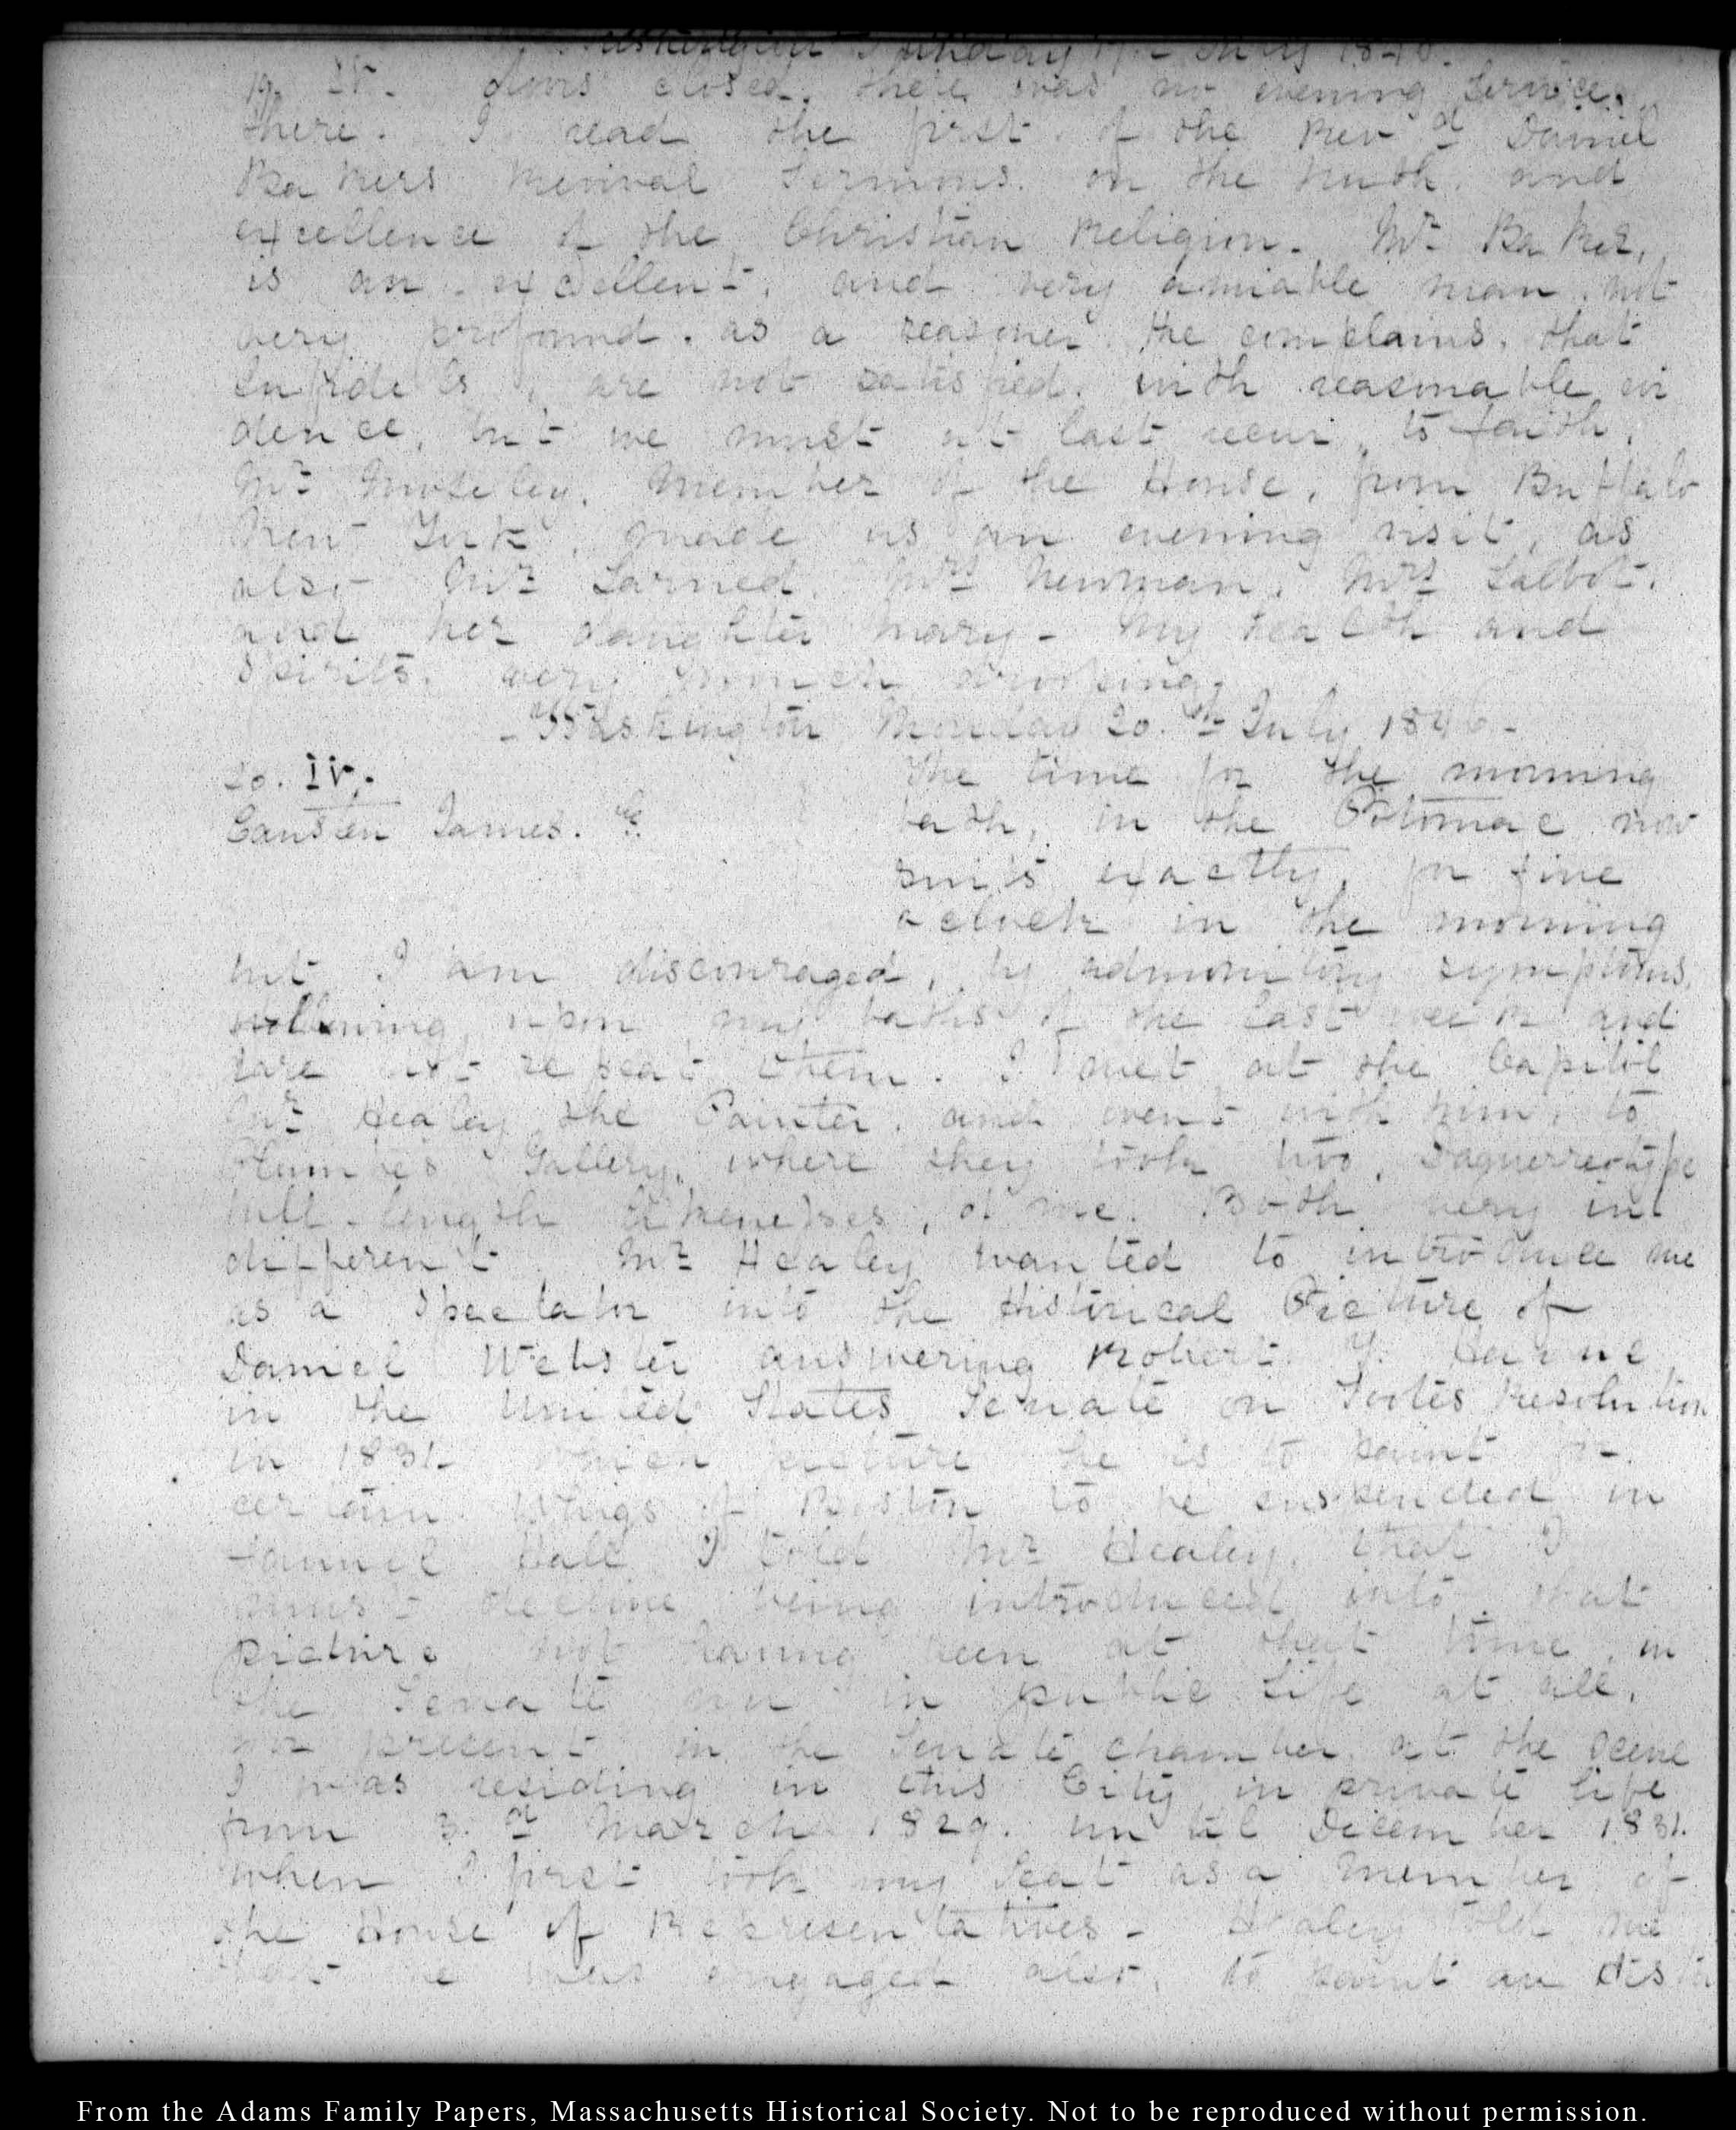 Washington Sunday 19. July 1846.
19. IV. doors closed. there was no evening Service.
there. I read the first of the Revd. Daniel
Bakers Revival Sermons. on the truth, and
excellence of the Christian Religion. Mr. Baker,
is an excellent, and very amiable man, not
very profound, as a reasoner. He complains, that
Infidels, are not satisfied, with reasonable evi
dence, but we must at last recur, to faith.
Mr. Moseley, Member of the House, from Buffalo
New York, made us an evening visit, as
also Mr. Larned, Mrs. Newman, Mrs. Talbot,
and her daughter Mary - My health and
Spirits, very much drooping.
- Washington Monday 20.th July 1846 -
20. IV.
Causten James. H. The time for the morning
bath, in the Potomac now
suits exactly, for five
o clock in the morning
but I am discouraged, by admonitory symptoms,
following upon my baths of the last week and
dare not repeat them. I met at the Capitol
Mr. Healey the Painter, and went with him, to
Plumbe's Gallery, where they took two, Daguerreotype
full length likenesses, of me. Both very in
different. Mr. Healey wanted to introduce me
as a Spectator into the Historical Picture of
Daniel Webster answering Robert Y. Hayne
in the United States Senate on Footes Resolution
in 1831. which picture he is to paint for
certain Whigs of Boston to be suspended in
Fanueil Hall I told Mr. Healey, that I
must decline being introduced into that
picture not having been at that time, in
the Senate nor in public life at all,
nor present in the Senate chamber, at the scene
I was residing in this City in private life
from 3.d March 1829. until December 1831.
when I first took my Seat as a Member of
the House of Representatives - Healey told me
that he was engaged also, to paint an Histo